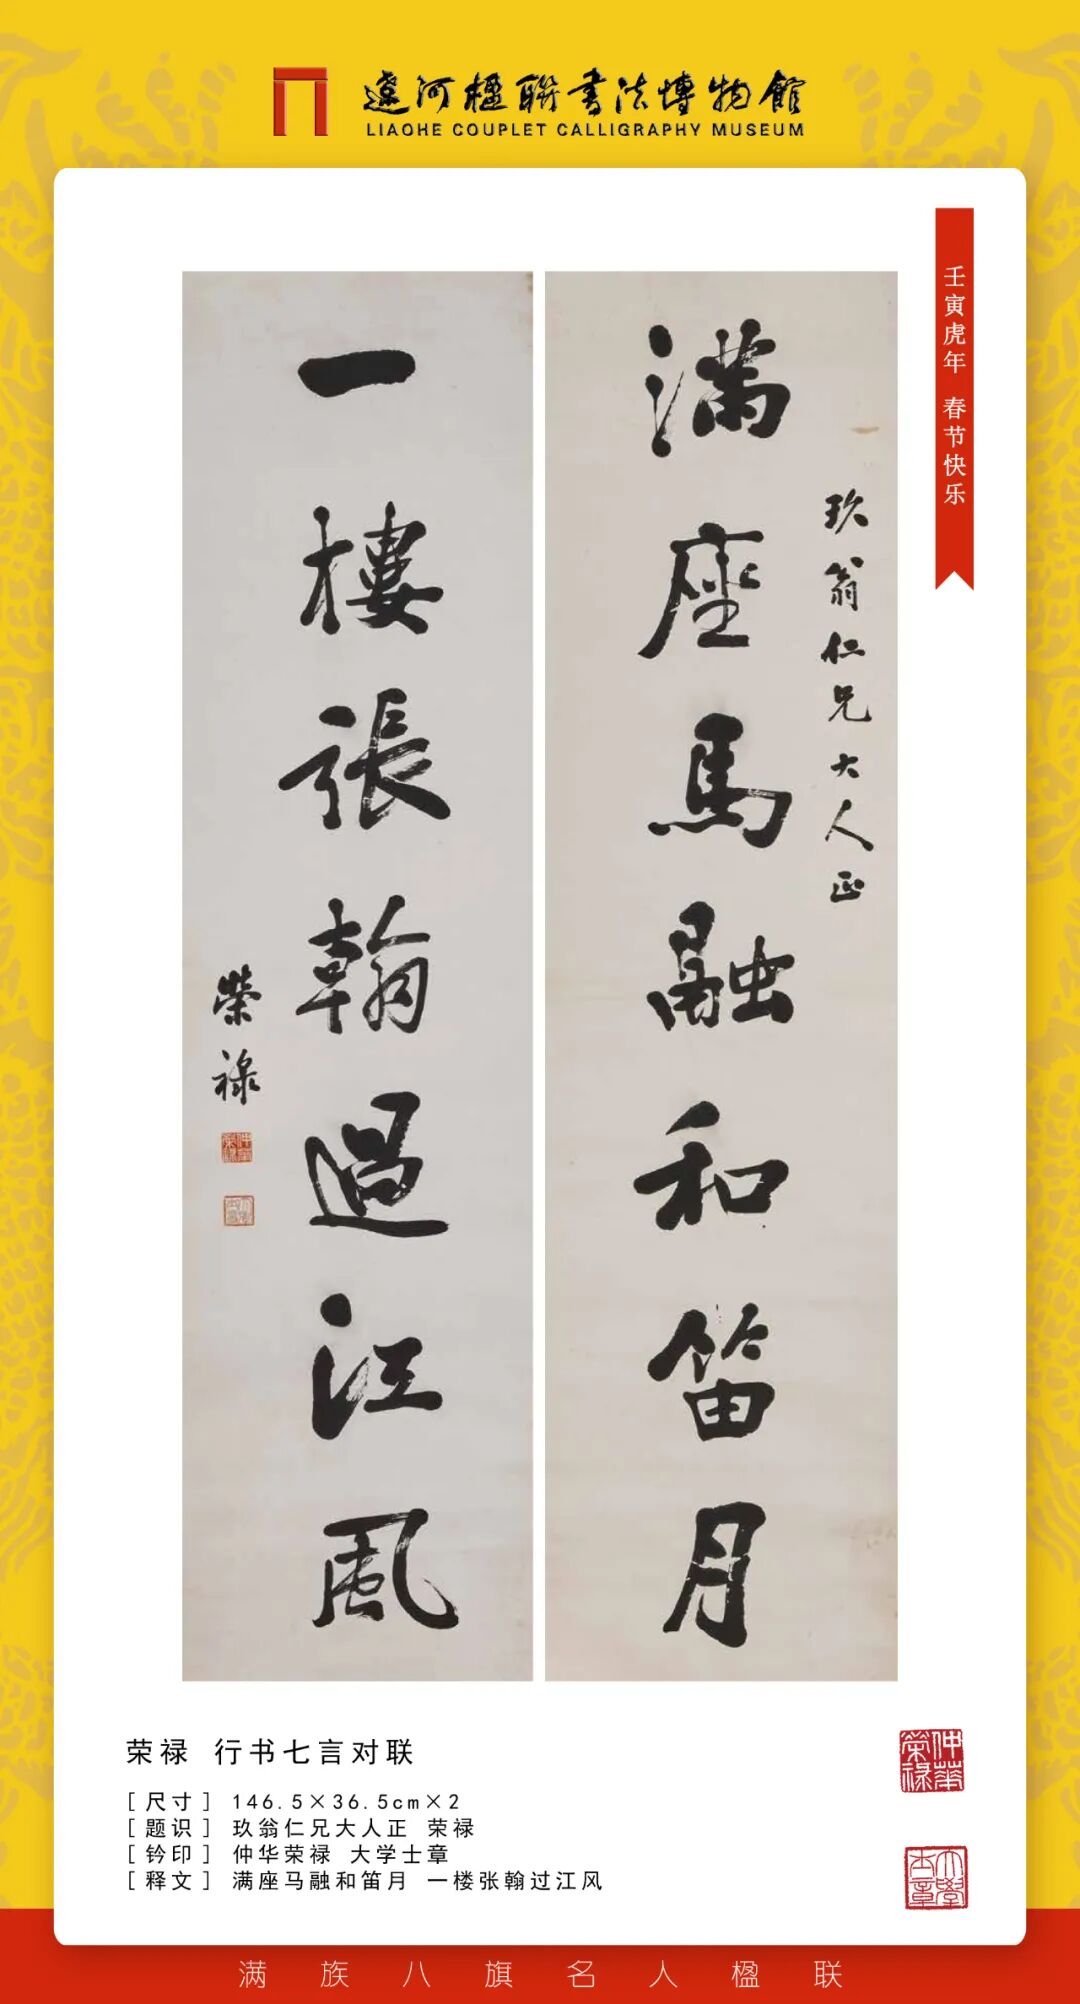 遼河楹聯書法博物館
LIAOHE COUPLET CALLIGRAPHY MUSEUM
壬寅虎年 春节快乐
玖翁仁兄大人正
滿座馬融和笛月
一樓張翰過江風
榮祿
仲華榮祿
大學士章
荣禄 行书七言对联
[尺寸] 146.5×36.5cm×2
[题识] 玖翁仁兄大人正 荣禄
[钤印] 仲华荣禄 大学士章
[释文] 满座马融和笛月 一楼张翰过江风
仲華榮祿
大學士章
满族八旗名人楹联